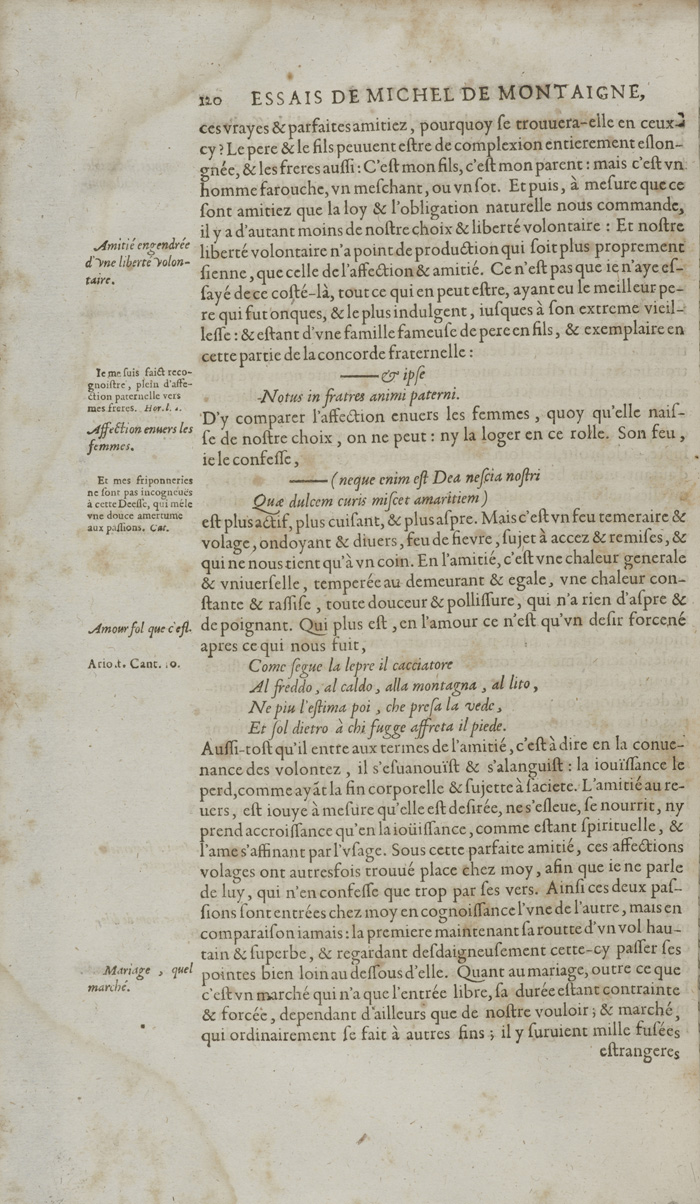 120 ESSAIS DE MICHEL DE MONTAIGNE,
ces vrayes & parfaites amitiez, pourquoy ſe trouuera-elle en ceux-
cy? Le pere & le fils peuuent eſtre de complexion entierement eſlon-
gnée, & les freres auſſi: C'eſt mon fils, c'eſt mon parent: mais c'eſt vn
homme farouche, vn meſchant, ou vn ſot. Et puis, à meſure que ce
ſont amitiez que la loy & l'obligation naturelle nous commande,
il y a d'autant moins de noſtre choix & liberté volontaire: Et noſtre
Amitié engendrée
d'vne liberté volon-
taire.
liberté volontaire n'a point de production qui ſoit plus proprement
ſienne, que celle de l'affection & amitié. Ce n'eſt pas que ie n'aye eſ-
ſayé de ce coſté-là, tout ce qui en peut eſtre, ayant eu le meilleur pe-
re qui fut onques, & le plus indulgent, iuſques à ſon extreme vieil-
leſſe: & eſtant d'vne famille fameuſe de pere en fils, & exemplaire en
cette partie de la concorde fraternelle:
Ie me ſuis faict reco-
gnoiſtre, plein d'affe-
ction paternelle vers
mes freres. Hor. l. 2.
—— & ipſe
Notus in fratres animi paterni.
Affection enuers les
femmes.
D'y comparer l'affection enuers les femmes, quoy qu'elle naiſ-
ſe de noſtre choix, on ne peut: ny la loger en ce rolle. Son feu,
ie le confeſſe,
Et mes friponneries
ne ſont pas incogneuës
à cette Deeſſe, qui mêle
vne douce amertume
aux paſſions. Cat.
—— (neque enim eſt Dea neſcia noſtri
Quæ dulcem curis miſcet amaritiem)
eſt plus actif, plus cuiſant, & plus aſpre. Mais c'eſt vn feu temeraire &
volage, ondoyant & diuers, feu de fievre, ſujet à accez & remiſes, &
qui ne nous tient qu'à vn coin. En l'amitié, c'eſt vne chaleur generale
& vniuerſelle, temperée au demeurant & egale, vne chaleur con-
ſtante & raſſiſe, toute douceur & polliſſure, qui n'a rien d'aſpre &
Amour fol que c'eſt.
de poignant. Qui plus eſt, en l'amour ce n'eſt qu'vn deſir forcené
apres ce qui nous fuit,
Ariost. Cant. 10.
Come ſegue la lepre il cacciatore
Al freddo, al caldo, alla montagna, al lito,
Ne piu l'eſtima poi, che preſa la vede,
Et ſol dietro à chi fugge affreta il piede.
Auſſi-toſt qu'il entre aux termes de l'amitié, c'eſt à dire en la conue-
nance des volontez, il s'eſuanouïſt & s'alanguiſt: la iouïſſance le
perd, comme ayāt la fin corporelle & ſujette à ſacieté. L'amitié au re-
uers, eſt iouye à meſure qu'elle eſt deſirée, ne s'eſleue, ſe nourrit, ny
prend accroiſſance qu'en la ioüiſſance, comme eſtant ſpirituelle, &
l'ame s'affinant par l'vſage. Sous cette parfaite amitié, ces affections
volages ont autresfois trouué place chez moy, afin que ie ne parle
de luy, qui n'en confeſſe que trop par ſes vers. Ainſi ces deux paſ-
ſions ſont entrées chez moy en cognoiſſance l'vne de l'autre, mais en
comparaiſon iamais: la premiere maintenant ſa routte d'vn vol hau-
tain & ſuperbe, & regardant deſdaigneuſement cette-cy paſſer ſes
Mariage, quel
marché.
pointes bien loin au deſſous d'elle. Quant au mariage, outre ce que
c'eſt vn marché qui n'a que l'entrée libre, ſa durée eſtant contrainte
& forcée, dependant d'ailleurs que de noſtre vouloir; & marché,
qui ordinairement ſe fait à autres fins; il y ſuruient mille fuſées
eſtrangeres